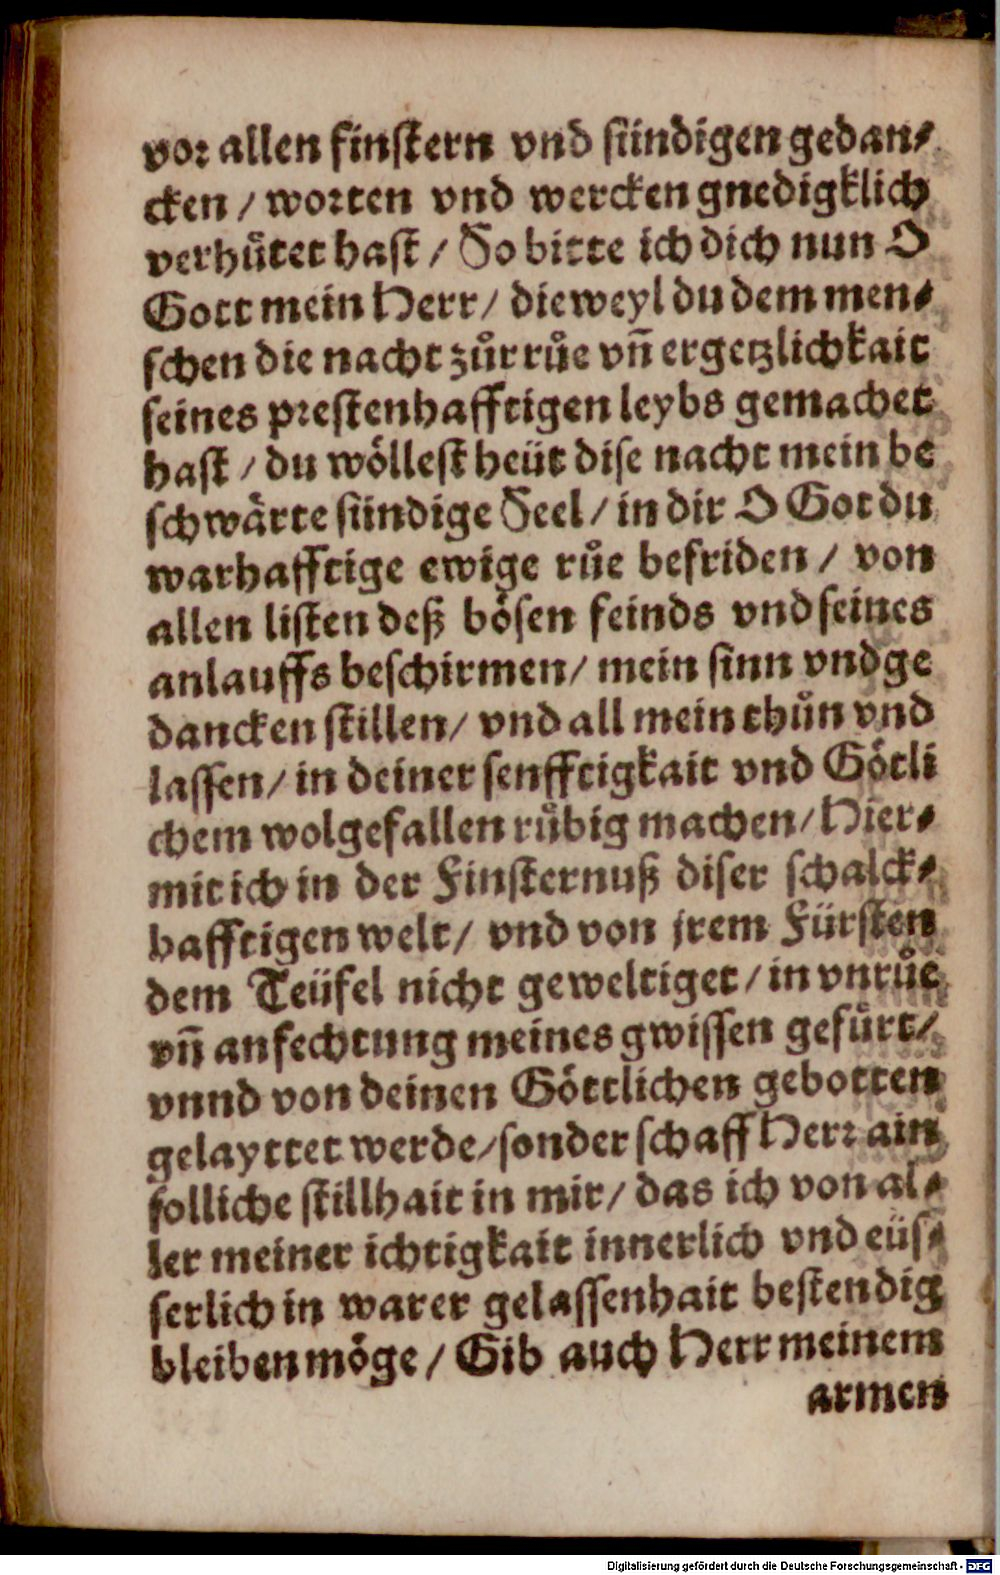 vor allen finstern vnd sündigen gedan⸗
cken / worten vnd wercken gnedigklich
verhuͤtet hast / So bitte ich dich nun O
Gott mein Herr / dieweyl du dem men⸗
schen die nacht zuͦr ruͦe vñ ergetzlichkait
seines prestenhafftigen leybs gemachet
hast / du woͤllest heüt dise nacht mein be
schwaͤrte sündige Seel / in dir O Got du
warhafftige ewige ruͦe befriden / von
allen listen deß boͤsen feinds vnd seines
anlauffs beschirmen / mein sinn vnd ge
dancken stillen / vnd all mein thuͦn vnd
lassen / in deiner senfftigkait vnd Goͤtli
chem wolgefallen ruͤbig machen / Hier⸗
mit ich in der Finsternuß diser schalck⸗
hafftigen welt / vnd von jrem Fürsten
dem Teüfel nicht geweltiget / in vnruͦe
vñ anfechtung meines gwissen gefuͤrt /
vnnd von deinen Goͤttlichen gebotten
gelayttet werde / sonder schaff Herr ain
solliche stillhait in mir / das ich von al⸗
ler meiner ichtigkait innerlich vnd eüs⸗
serlich in warer gelassenhait bestendig
bleiben moͤge / Gib auch Herr meinem
armen
Digitalisierung gefördert durch die Deutsche Forschungsgemeinschaft - DFG